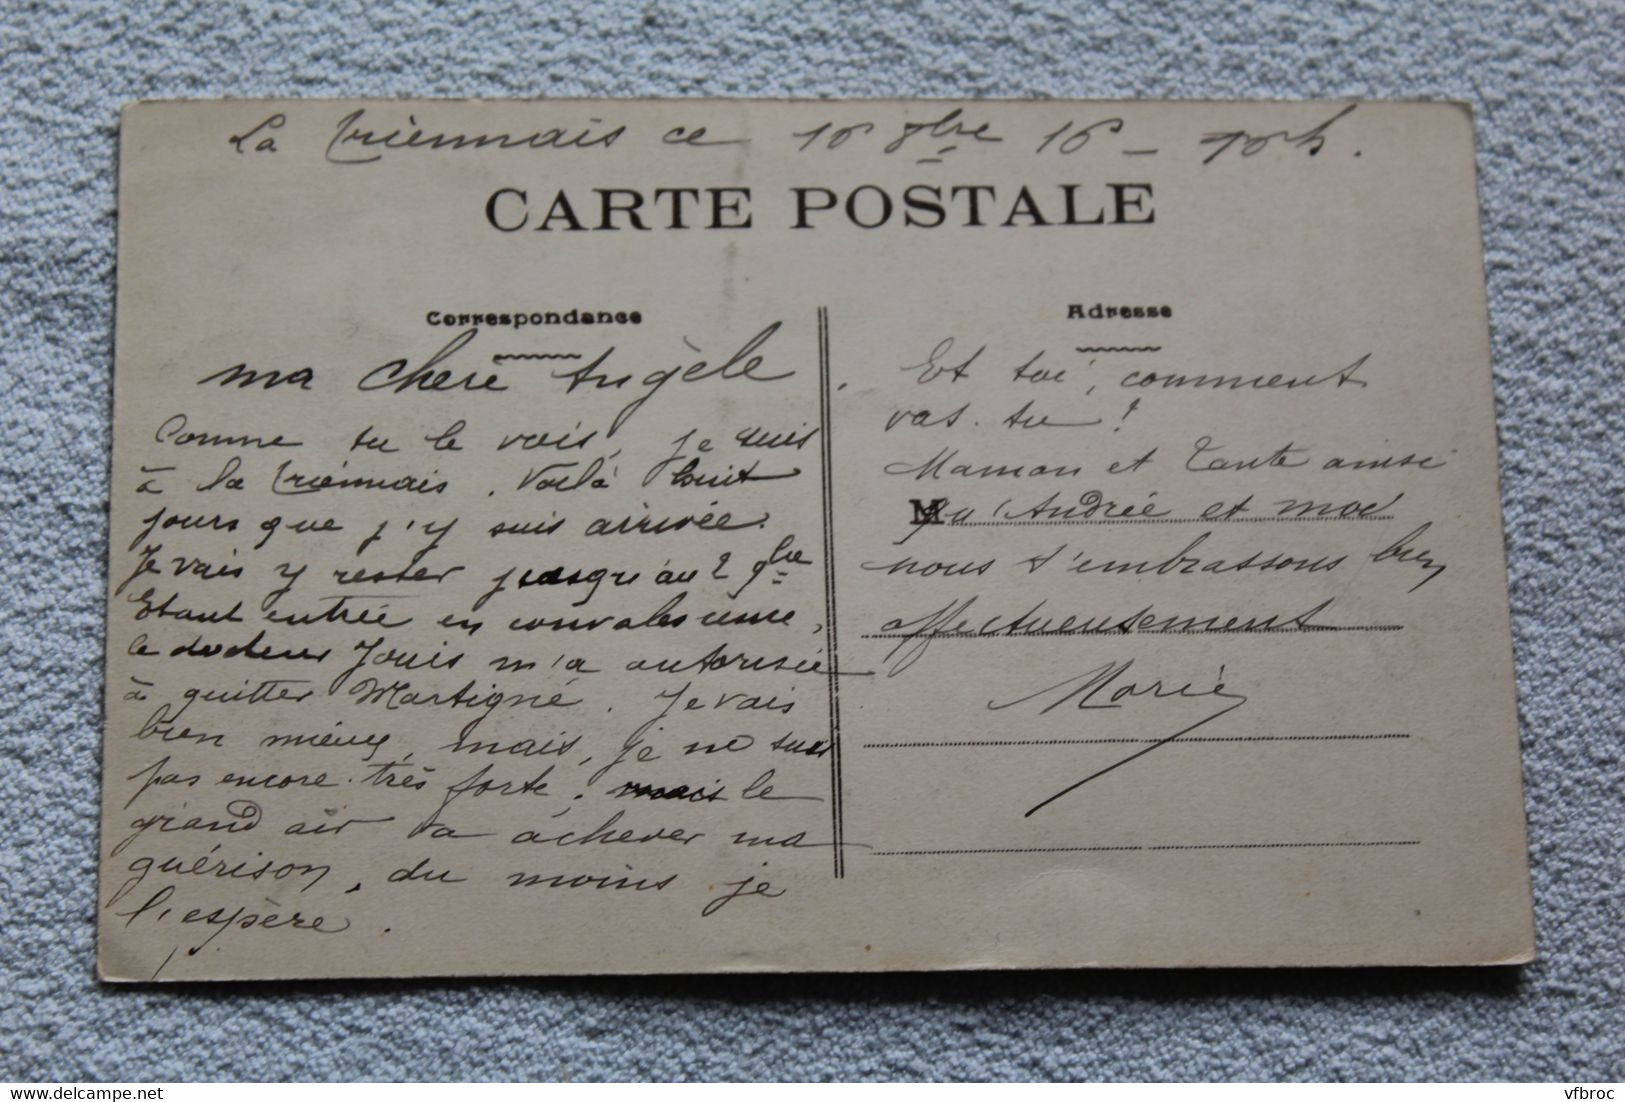 La Vriennais ce 16 8bre 16 - 10h.
CARTE POSTALE
Correspondance
ma Cheré Angèle
Comme tu le vois, je suis
à la Vriennais. Voilà huit
jours que j'y suis arrivée.
Je vais y rester jusqu'au 2 9bre
Etant entrée en convalescence,
le docteur Jouis m'a autorisée
à quitter Martigné. Je vais
bien mieux, mais, je ne suis
pas encore très forte. mais le
grand air va achever ma
guérison, du moins je
l'espère.
Adresse
Et toi, comment
vas-tu?
Maman et Tante ainsi
M qu'Andrée et moi
nous t'embrassons bien
affectueusement
Marie
delcampe.net
vfbroc